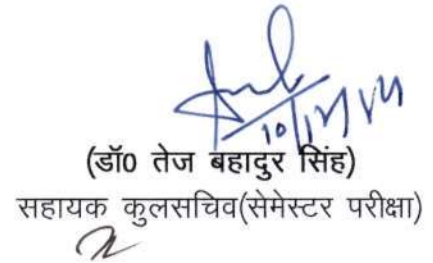 (डॉ0 तेज बहादुर सिंह)
सहायक कुलसचिव(सेमेस्टर परीक्षा)